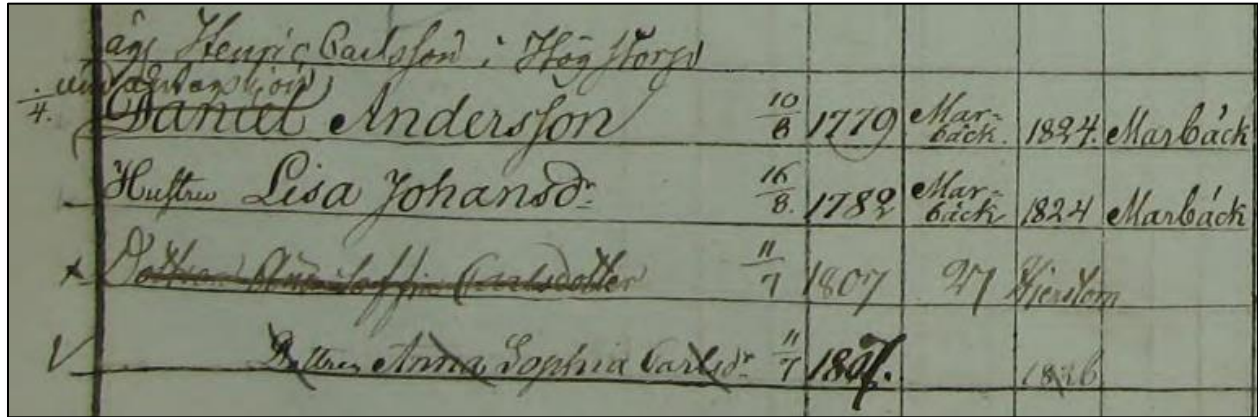 äges Henric Carlsson i Högstorp
1/4. Daniel Andersson 10/8 1779 Mar=bäck. 1824. Marbäck
Hustru Lisa Johansdr 16/8. 1782 Mar=bäck 1824 Marbäck
x Dottren Carlsdotter 11/7 1807 27
V Dottren Anna Sophia Carlsdr 11/7 1807. 1826